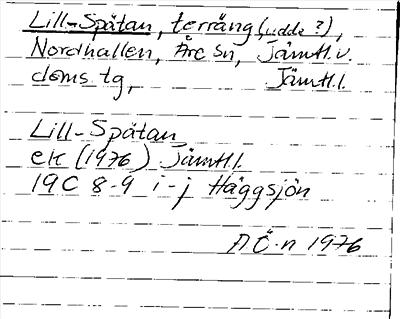 Lill-Spätan, terräng (udde?),
Nordhallen, Åre sn, Jämtl. v.
doms. tg, Jämtl.l.
Lill-Spätan
ek (1976) Jämtl.l.
19C 8-9 i-j Häggsjön
A Ö-n 1976